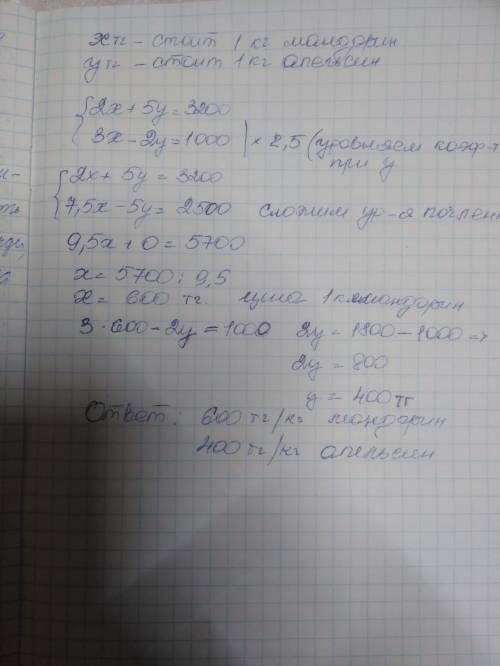 x тг - стоит 1 кг мандарин
y тг - стоит 1 кг апельсин
2x + 5y = 3200
3x - 2y = 1000 | × 2,5 (уравняем коэф-т
при y
2x + 5y = 3200
7,5x - 5y = 2500 сложим ур-я почлен
9,5x + 0 = 5700
x = 5700 : 9,5
x = 600 тг. цена 1 кг мандарин
3 · 600 - 2y = 1000 2y = 1800 - 1000 =>
2y = 800
y = 400 тг
Ответ: 600 тг/кг мандарин
400 тг/кг апельсин